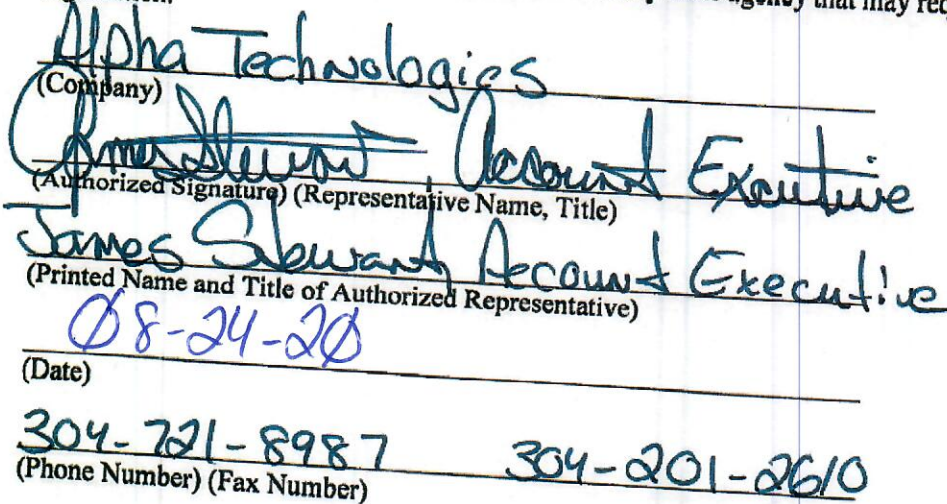 agency that may req
Alpha Technologies
(Company)
James Stewart, Account Executive
(Authorized Signature) (Representative Name, Title)
James Stewart, Account Executive
(Printed Name and Title of Authorized Representative)
08-24-20
(Date)
304-721-8987 304-201-2610
(Phone Number) (Fax Number)